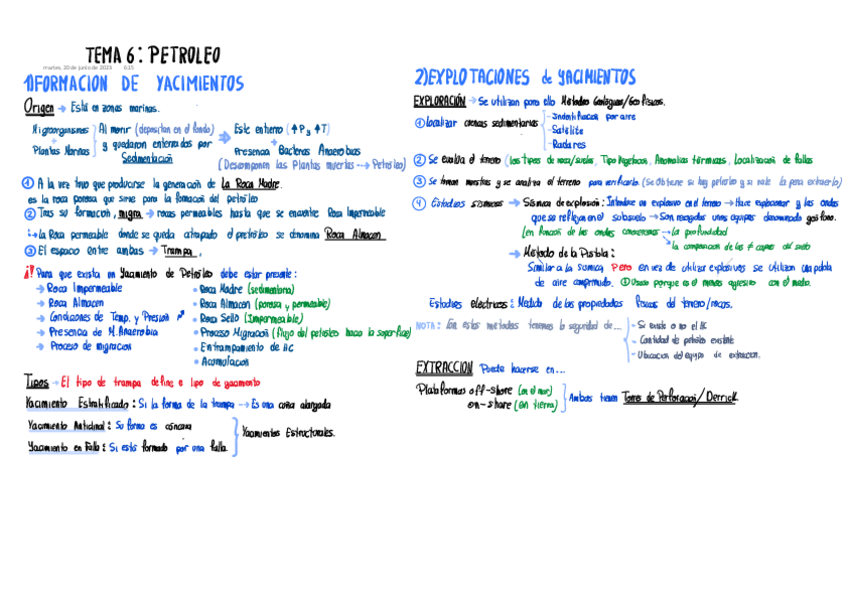 TEMA 6: PETROLEO
martes, 20 de junio de 2023
1)FORMACION DE YACIMIENTOS
Origen → Está en zonas marinas.
Microorganismos + Plantas Marinas
Al morir (depositan en el fondo) y quedaron enterradas por Sedimentación
Este entierro (↑P y ↑T) + Presencia Bacterias Anaerobias
(Descomponen las Plantas muertas → Petróleo)
① A la vez tuvo que producirse la generación de La Roca Madre.
es la roca porosa que sirve para la formación del petróleo
② Tras su formación, migra → rocas permeables hasta que se encuentre Roca Impermeable
↳ La Roca permeable donde se queda atrapado el petróleo se denomina Roca Almacen
③ El espacio entre ambas → Trampa.
¡! Para que exista un Yacimiento de Petróleo debe estar presente:
→ Roca Impermeable
→ Roca Almacen
→ Condiciones de Temp. y Presión
→ Presencia de M.Anaerobia
→ Proceso de migración
• Roca Madre (sedimentaria)
• Roca Almacen (porosa y permeable)
• Roca Sello (Impermeable)
• Proceso Migración (flujo del petróleo hacia la superficie)
• Entrampamiento de HC
• Acumulacion
Tipos → El tipo de trampa define el tipo de yacimiento
Yacimiento Estratificado: Si la forma de la trampa → Es una capa alargada
Yacimiento Anticlinal: Su forma es cóncava
Yacimiento en Falla: Si está formado por una falla.
Yacimientos Estructurales.
2)EXPLOTACIONES de YACIMIENTOS
EXPLORACIÓN → Se utilizan para ello Métodos Geológicos/Geofísicos.
① Localizar cuencas sedimentarias
- Indentificación por aire
- Satélite
- Radares
② Se evalua el terreno (los tipos de roca/suelos, Tipo logísticos, Anomalías térmicas, Localización de fallas
③ Se toman muestras y se analiza el terreno para verificarlo. (Se Obtiene si hay petróleo y si vale la pena extraerlo)
④ Estudios sísmicos → Sísmica de explosión: Introducir un explosivo en el terreno → Hace explosionar y las ondas
que se reflejan en el subsuelo → Son recogidas unos equipos denominado geófono.
(en función de las ondas conocemos → la profundidad
↳ la composición de las ≠ capas del suelo
→ Método de la Pistola:
Similar a la sísmica Pero en vez de utilizar explosivos se utilizan una pistola
de aire comprimido. ① Usado porque es el menos agresivo con el medio.
Estudios eléctricos: Medida de las propiedades físicas del terreno/rocas.
NOTA: Con estos métodos tenemos la seguridad de...
- Si existe o no el HC
- Cantidad de petróleo existente
- Ubicación del equipo de extracción.
EXTRACCION Puede hacerse en...
Plataformas off-shore (en el mar)
on-share (en tierra)
Ambas tienen Torres de Perforación/Derrick.